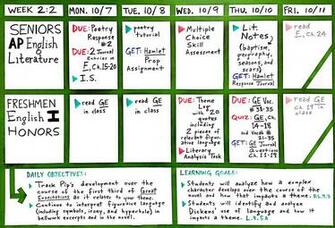 WEEK 2:2
MON. 10/7
TUE. 10/8
WED. 10/9
THU. 10/10
FRI. 10/11
SENIORS
AP English
Literature
DUE: Poetry
Response
#2
DUE: 2 Journal
Entries on
E, ch.15-20
I.S.
poetry
tutorial
GET: Hamlet
Prop
Assignment
Multiple
Choice
Skill
Assessment
Lit.
Notes
(baptism,
geography,
seasons, and
scars)
GET: Hamlet
Journal
read
E, ch. 24
FRESHMEN
English I
HONORS
read GE
in class
read GE
in class
DUE: Theme
Log
with 20
quotes
including
2 pieces of
relevant figur-
ative language
Literary
Analysis Task
DUE: GE Voc
# 31-35
QUIZ: GE, Ch.
14-18
and Vocab #
21-35
GET: GE Journal
Questions
Ch. 15-19
read GE
Ch. 19 in
class
DAILY OBJECTIVES:
Track Pip's development over the
course of the first third of Great
Expectations as it relates to your theme.
Continue to interpret figurative language
(including symbols, irony, and hyperbole) in
bellwork excerpts and in the novel.
LEARNING GOALS:
Students will analyze how a complex
character develops over the course of the
novel and how that impacts a theme.
Students will identify and analyze
Dickens' use of language and how it
impacts a theme.